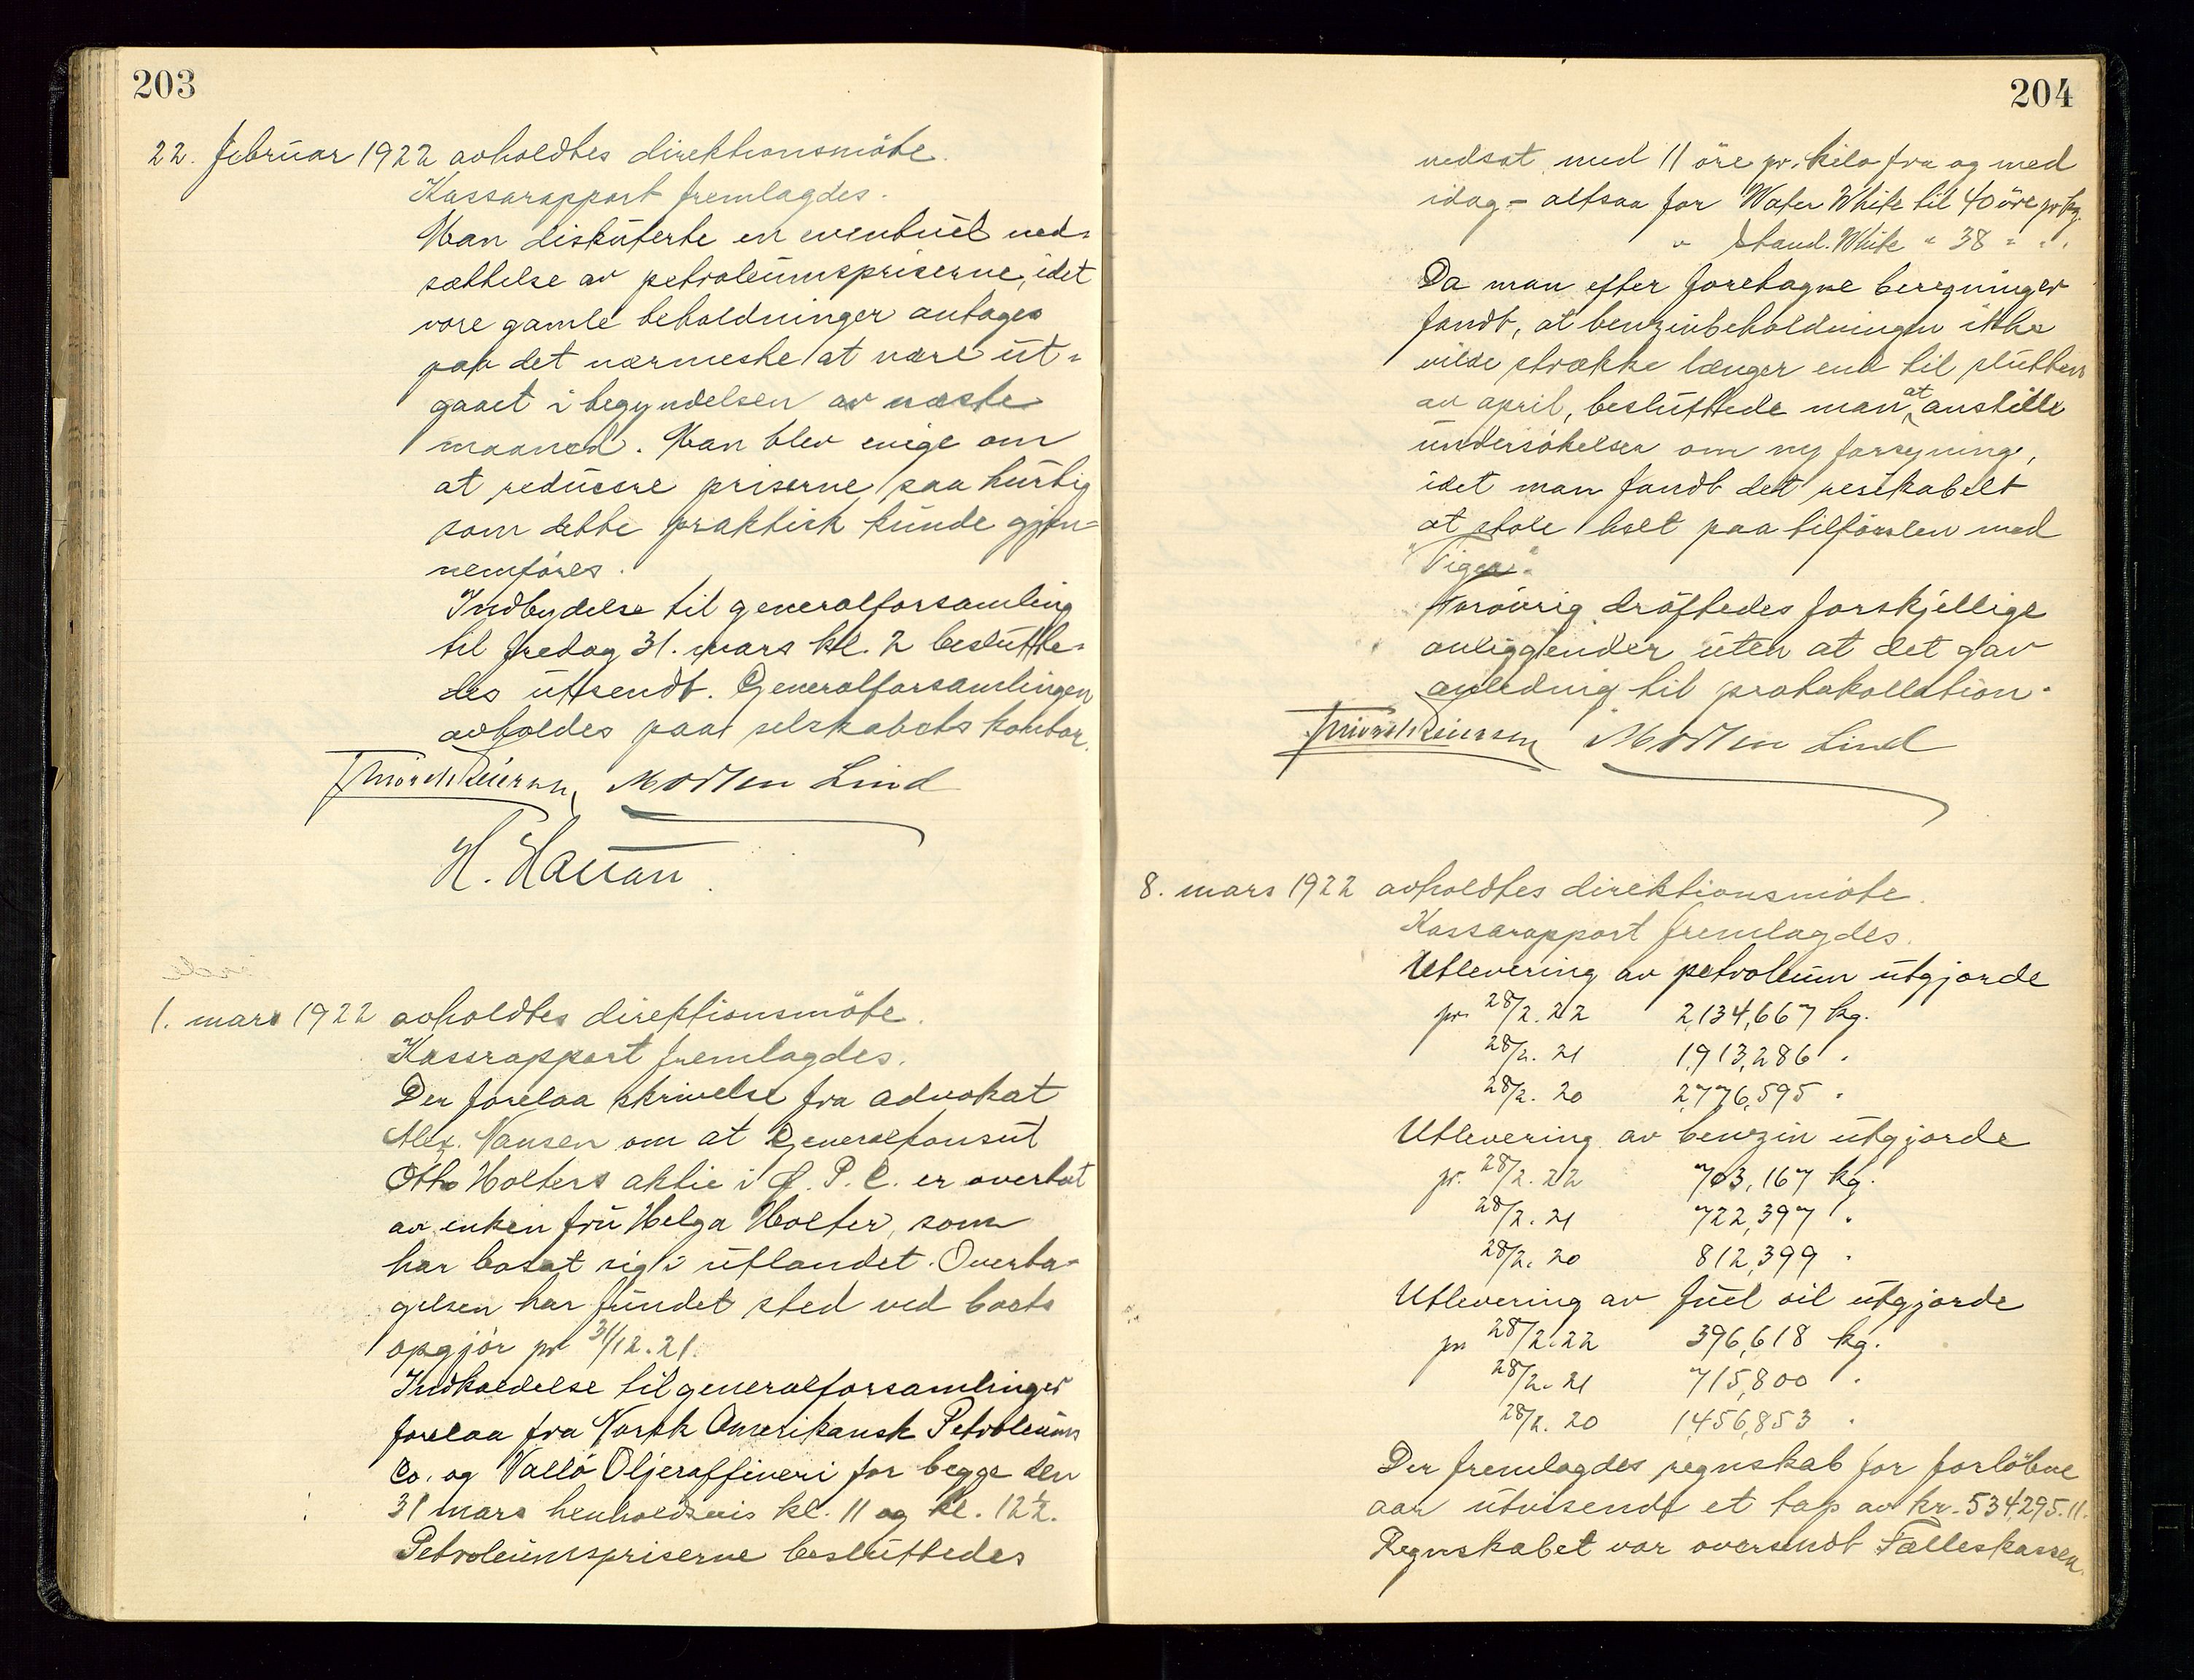 203
22. februar 1922 avholdtes direktionsmöte.
Kassarapport fremlagdes.
Man diskuterte en eventuel ned-
sættelse av petroleumspriserne, idet
vore gamle beholdninger antages
paa det nærmeste at være ut-
gaaet i begyndelsen av næste
maaned. Man blev enige om
at reducere priserne saa hurtig
som dette praktisk kunde gjen-
nemföres.
Indbydelse til generalforsamling
til fredag 31. mars kl. 2 beslutte-
des uttsendt. Generalforsamlingen
avholdes paa selskabets kontor.
Morten Lind
1. mars 1922 avholdtes direktionsmöte.
Kassrapport fremlagdes.
Der forelaa skrivelse fra advokat
Alex. Nansen om at Generalkonsul
Otto Holters aktie i Ø. P. C. er overtat
av enken fru Helga Holter, som
har bosat sig i utlandet. Overta-
gelsen har fundet sted ved boets
opgjör pr 31/12.21.
Indkaldelse til generalforsamlinger
forelaa fra Norsk Amerikansk Petroleums
Co. og Vallö Oljeraffineri for begge den
31 mars henholdsvis kl. 11 og kl. 12½.
Petroleumspriserne besluttedes
204
nedsat med 11 öre pr. kilo fra og med
idag - altsaa for Water White til 40 öre pr kg.
" Stand. White " 38 " " "
Da man efter foretagne beregninger
fandt, at benzinbeholdningen ikke
vilde strække længer end til slutten
av april, besluttede man at anstille
undersökelser om ny forsyning,
idet man fandt det resikabelt
at stole helt paa tilförslen med
"Tiger".
Forövrig dröftedes forskjellige
anliggender uten at det gav
anledning til protokollation.
Morten Lind
8. mars 1922 avholdtes direktionsmöte.
Kassarapport fremlagdes.
Utlevering av petroleum utgjorde
pr. 28/2. 22 2,134,667 kg.
28/2. 21 1,913,286 "
28/2. 20 2,776,595 "
Utlevering av benzin utgjorde
pr. 28/2. 22 703,167 kg.
28/2. 21 722,397 "
28/2. 20 812,399 "
Utlevering av fuel oil utgjorde
pr 28/2. 22 396,618 kg.
28/2. 21 715,800 "
28/2. 20 1,456,853 "
Der fremlagdes regnskab for forlöbne
aar utvisende et tap av kr. 534,295.11.
Regnskabet var oversendt Fælleskassen